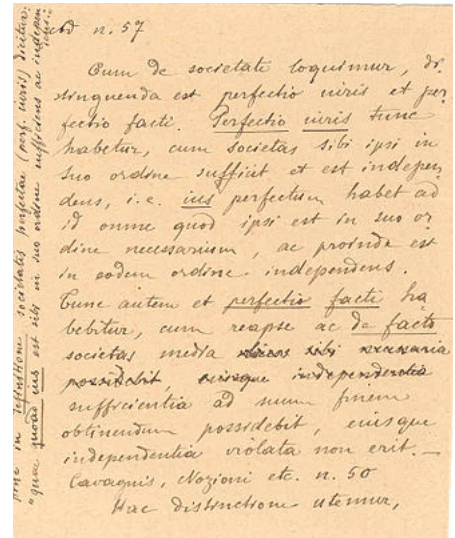 ad n. 57
Cum de societate loquimur, di-
stinguenda est perfectio iuris et per-
fectio facti. Perfectio iuris tunc
habetur, cum societas sibi ipsi in
suo ordine sufficit et est indepen-
dens, i.e. ius perfectum habet ad
id omne quod ipsi est in suo or-
dine necessarium, ac proinde est
in eodem ordine independens.
Tunc autem et perfectio facti ha-
bebitur, cum reapse ac de facto
societas media sibi necessaria
possidebit, eiusque independentia
sufficientia ad suum finem
obtinendum possidebit, eiusque
independentia violata non erit. —
Cavagnis, Nozioni etc. n. 50
Hac distinctione utemur,
in definitione societatis perfectae (perf. iuris) dicitur:
"quae quoad ius est sibi in suo ordine sufficiens ac indepen
dens"